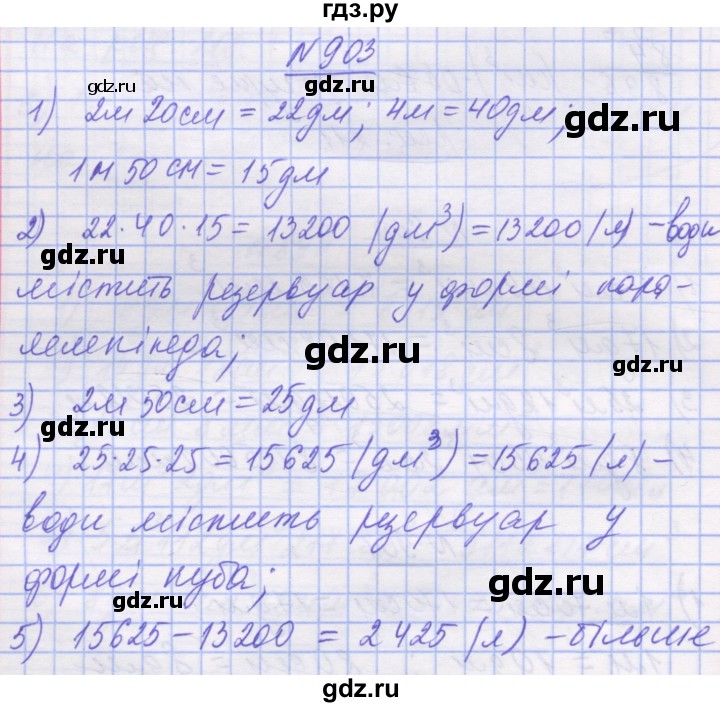 гдз.ру
N 903
gdz.ru
gdz.ru
gdz.ru
1) 2м 20см = 22дм; 4м = 40дм;
1м 50см = 15дм
2) 22·40·15 = 13200 (дм³) = 13200 (л) – води
gdz.ru
містить резервуар у формі пара-
лелепіпеда;
gdz.ru
3) 2м 50см = 25дм
gdz.ru
4) 25·25·25 = 15625 (дм³) = 15625 (л) –
води містить резервуар у
формі куба;
gdz.ru
gdz.ru
5) 15625 – 13200 = 2425 (л) – більше
gdz.ru